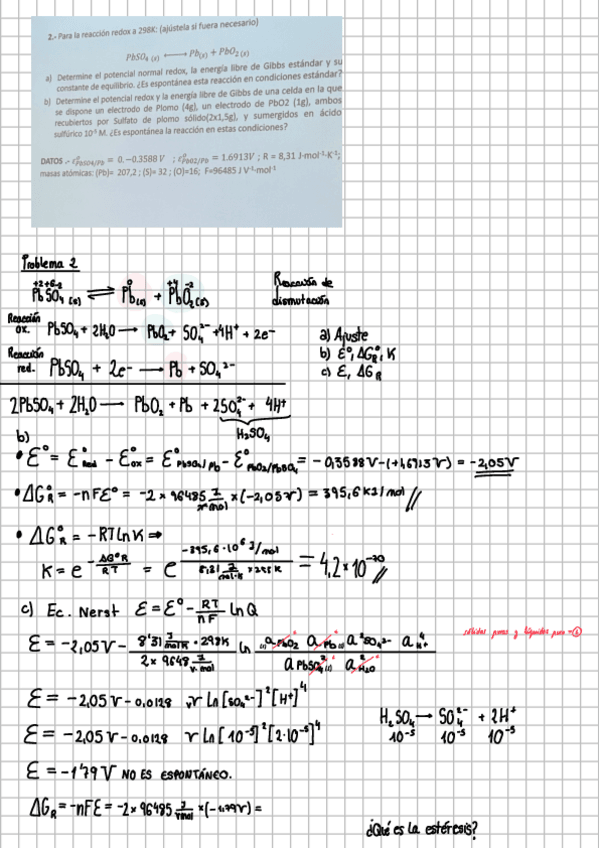 2.- Para la reacción redox a 298K: (ajústela si fuera necesario)
PbSO₄ (s) ⟷ Pb(s) + PbO₂ (s)
a) Determine el potencial normal redox, la energía libre de Gibbs estándar y su
constante de equilibrio. ¿Es espontánea esta reacción en condiciones estándar?
b) Determine el potencial redox y la energía libre de Gibbs de una celda en la que
se dispone un electrodo de Plomo (4g), un electrodo de PbO2 (1g), ambos
recubiertos por Sulfato de plomo sólido(2x1,5g), y sumergidos en ácido
sulfúrico 10⁻⁵ M. ¿Es espontánea la reacción en estas condiciones?
DATOS.- ε⁰PbSO4/Pb = 0,-0.3588 V ; ε⁰PbO2/Pb = 1.6913V ; R = 8,31 J·mol⁻¹·K⁻¹;
masas atómicas: (Pb)= 207,2 ; (S)= 32 ; (O)=16; F=96485 J V⁻¹·mol⁻¹
Problema 2
+2 +6 -2 0 +4 -2
PbSO₄ (s) ⇌ Pb(s) + PbO₂(s)
Reacción de
dismutación
Reacción
ox. PbSO₄ + 2H₂O → PbO₂ + SO₄²⁻ + 4H⁺ + 2e⁻
Reacción
red. PbSO₄ + 2e⁻ → Pb + SO₄²⁻
a) Ajuste
b) Ɛ°, ΔG°R, K
c) Ɛ, ΔGR
2PbSO₄ + 2H₂O → PbO₂ + Pb + 2SO₄²⁻ + 4H⁺
H₂SO₄
b)
• Ɛ° = Ɛ°Red - Ɛ°ox = Ɛ°PbSO₄/Pb - Ɛ°PbO₂/PbSO₄ = -0,3588V-(+1,6913V) = -2,05V
• ΔG°R = -nFƐ° = -2 × 96485 J/V·mol × (-2,05V) = 395,6 KJ/mol
• ΔG°R = -RT ln K ⇒
K = e^(-ΔG°R/RT) = e^(-395,6·10⁶ J/mol / 8,31 J/mol·K × 298K) = 4,2 × 10⁻⁷⁰
c) Ec. Nerst Ɛ = Ɛ° - RT/nF ln Q
sólidos puros y líquidos puros
Ɛ = -2,05V - (8'31 J/mol K · 298K)/(2 × 9648 J/V·mol) ln (a PbO₂ a Pb(s) a² SO₄²⁻ a⁴ H⁺)/(a² PbSO₄(s) a² H₂O)
Ɛ = -2,05 V - 0,0128 V Ln [SO₄²⁻]² [H⁺]⁴
Ɛ = -2,05 V - 0,0128 V Ln [10⁻⁵]² [2·10⁻⁵]⁴
H₂SO₄ → SO₄²⁻ + 2H⁺
10⁻⁵ 10⁻⁵ 10⁻⁵
Ɛ = -1'79 V NO ES ESPONTÁNEO.
ΔGR = -nFƐ = -2 × 96485 J/V·mol × (-1,79V) =
¿Qué es la estéresis?